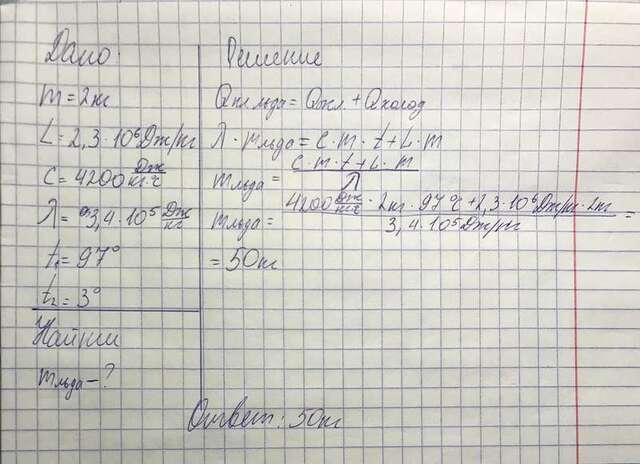 Дано:
m = 2кг
L = 2,3·10⁶ Дж/кг
c = 4200 Дж/кг·с
λ = 3,4·10⁵ Дж/кг
t₁ = 97°
t₂ = 3°
Найти
mльда - ?
Решение
Qпл льда = Qжл + Qхолод
λ · mльда = c · m · t + L · m
mльда = c · m · t + L · m / λ
mльда = 4200 Дж/кг·с · 2кг · 97°С + 2,3·10⁶ Дж/кг · 2кг / 3,4·10⁵ Дж/кг =
= 50кг
Ответ: 50кг